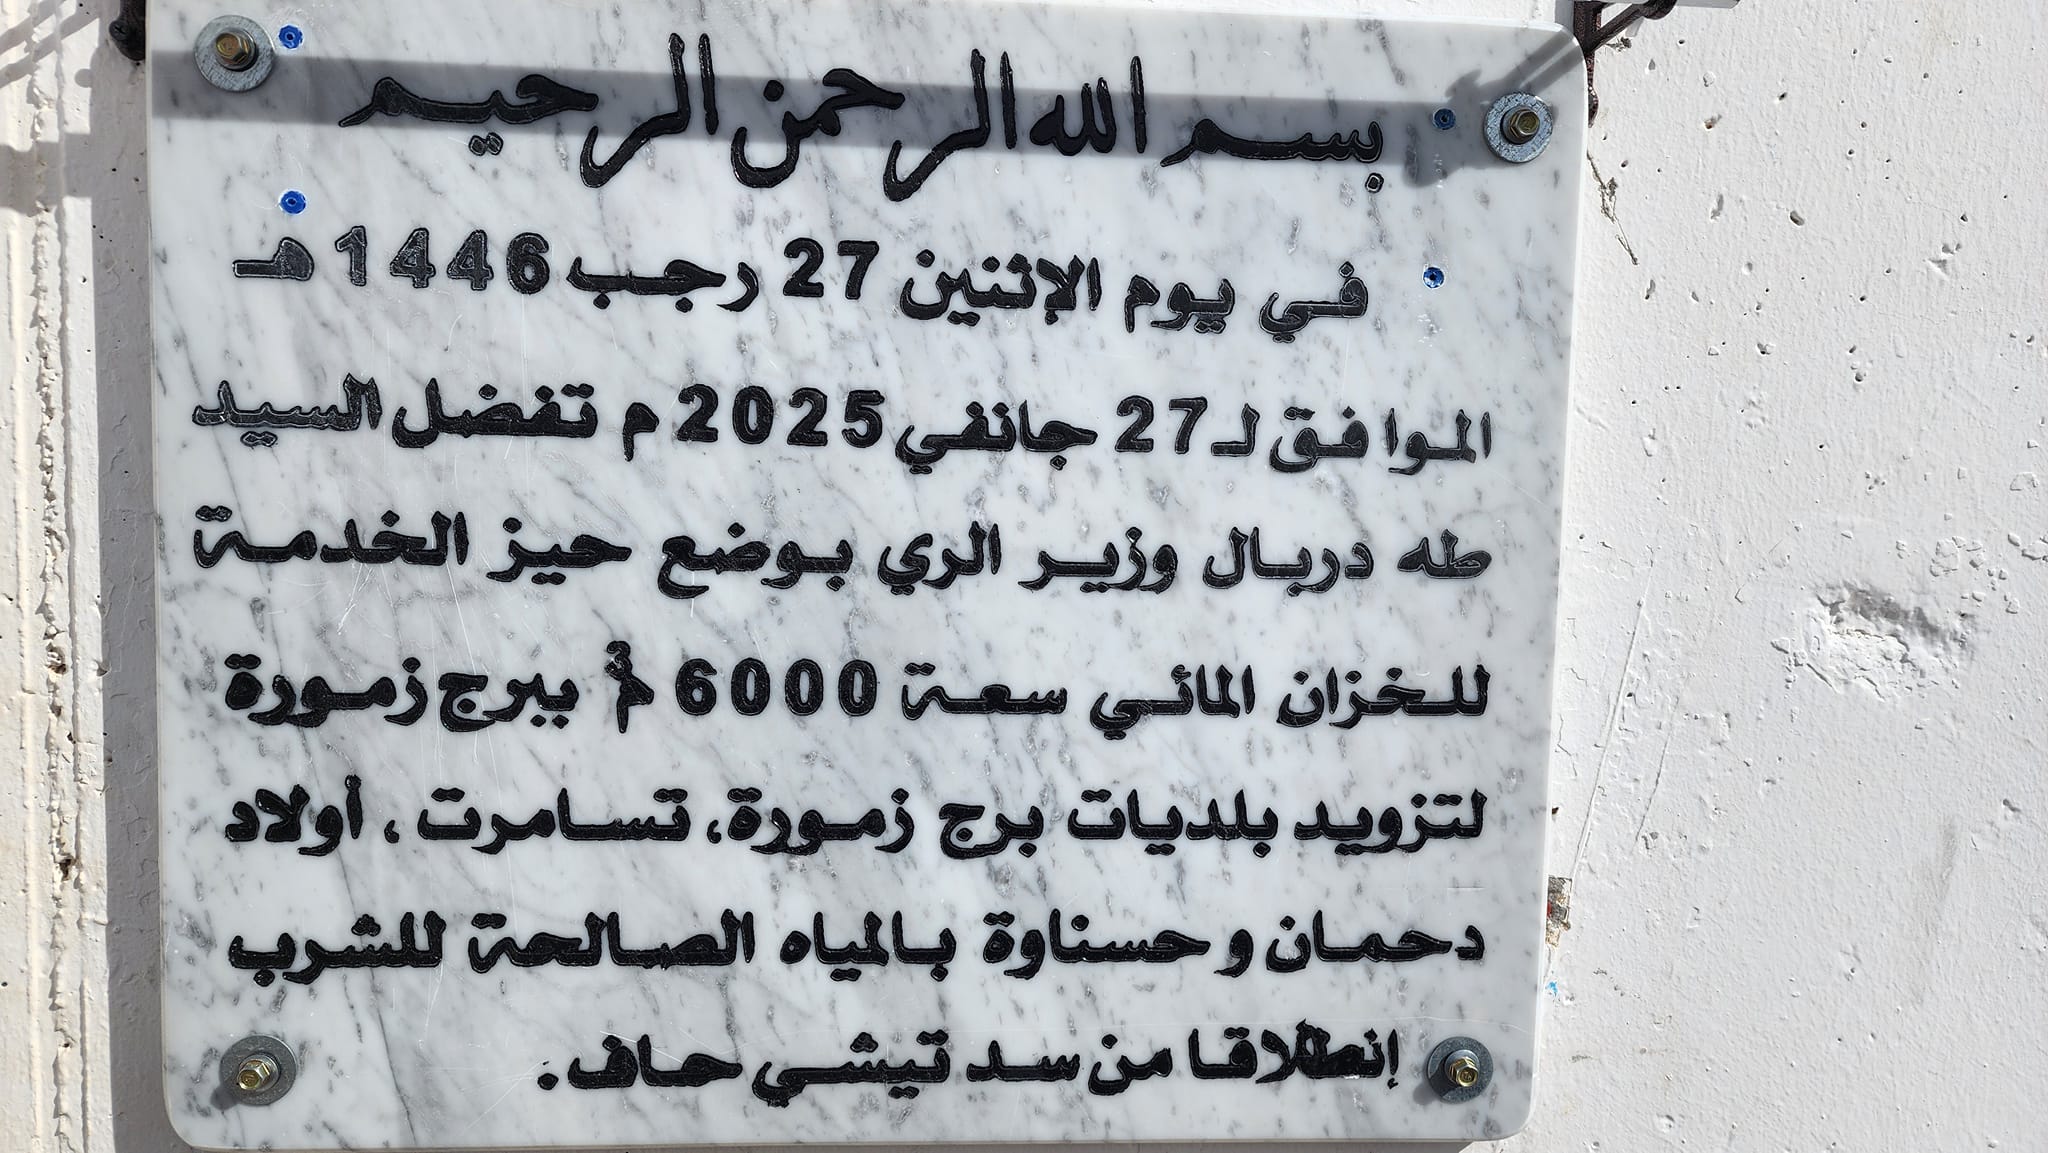 بسم الله الرحمن الرحيم
في يوم الإثنين 27 رجب 1446 هـ
الموافق لـ 27 جانفي 2025 م تفضل السيد
طه دربال وزير الري بوضع حيز الخدمة
للخزان المائي سعة 6000 م³ ببرج زمورة
لتزويد بلديات برج زمورة، تسامرت، أولاد
دحمان و حسناوة بالمياه الصالحة للشرب
إنطلاقا من سد تيشي حاف.